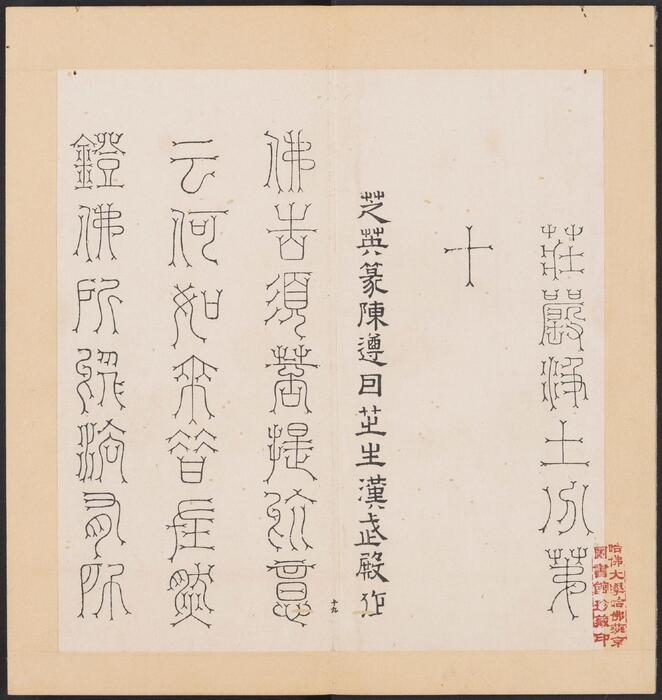 莊嚴淨土分第
十
芝英篆陳遵曰芝生漢武殿作
佛告須菩提於意
十九
云何如來昔在然
鐙佛所於法有所
哈佛大學哈佛燕京
圖書館珍藏印